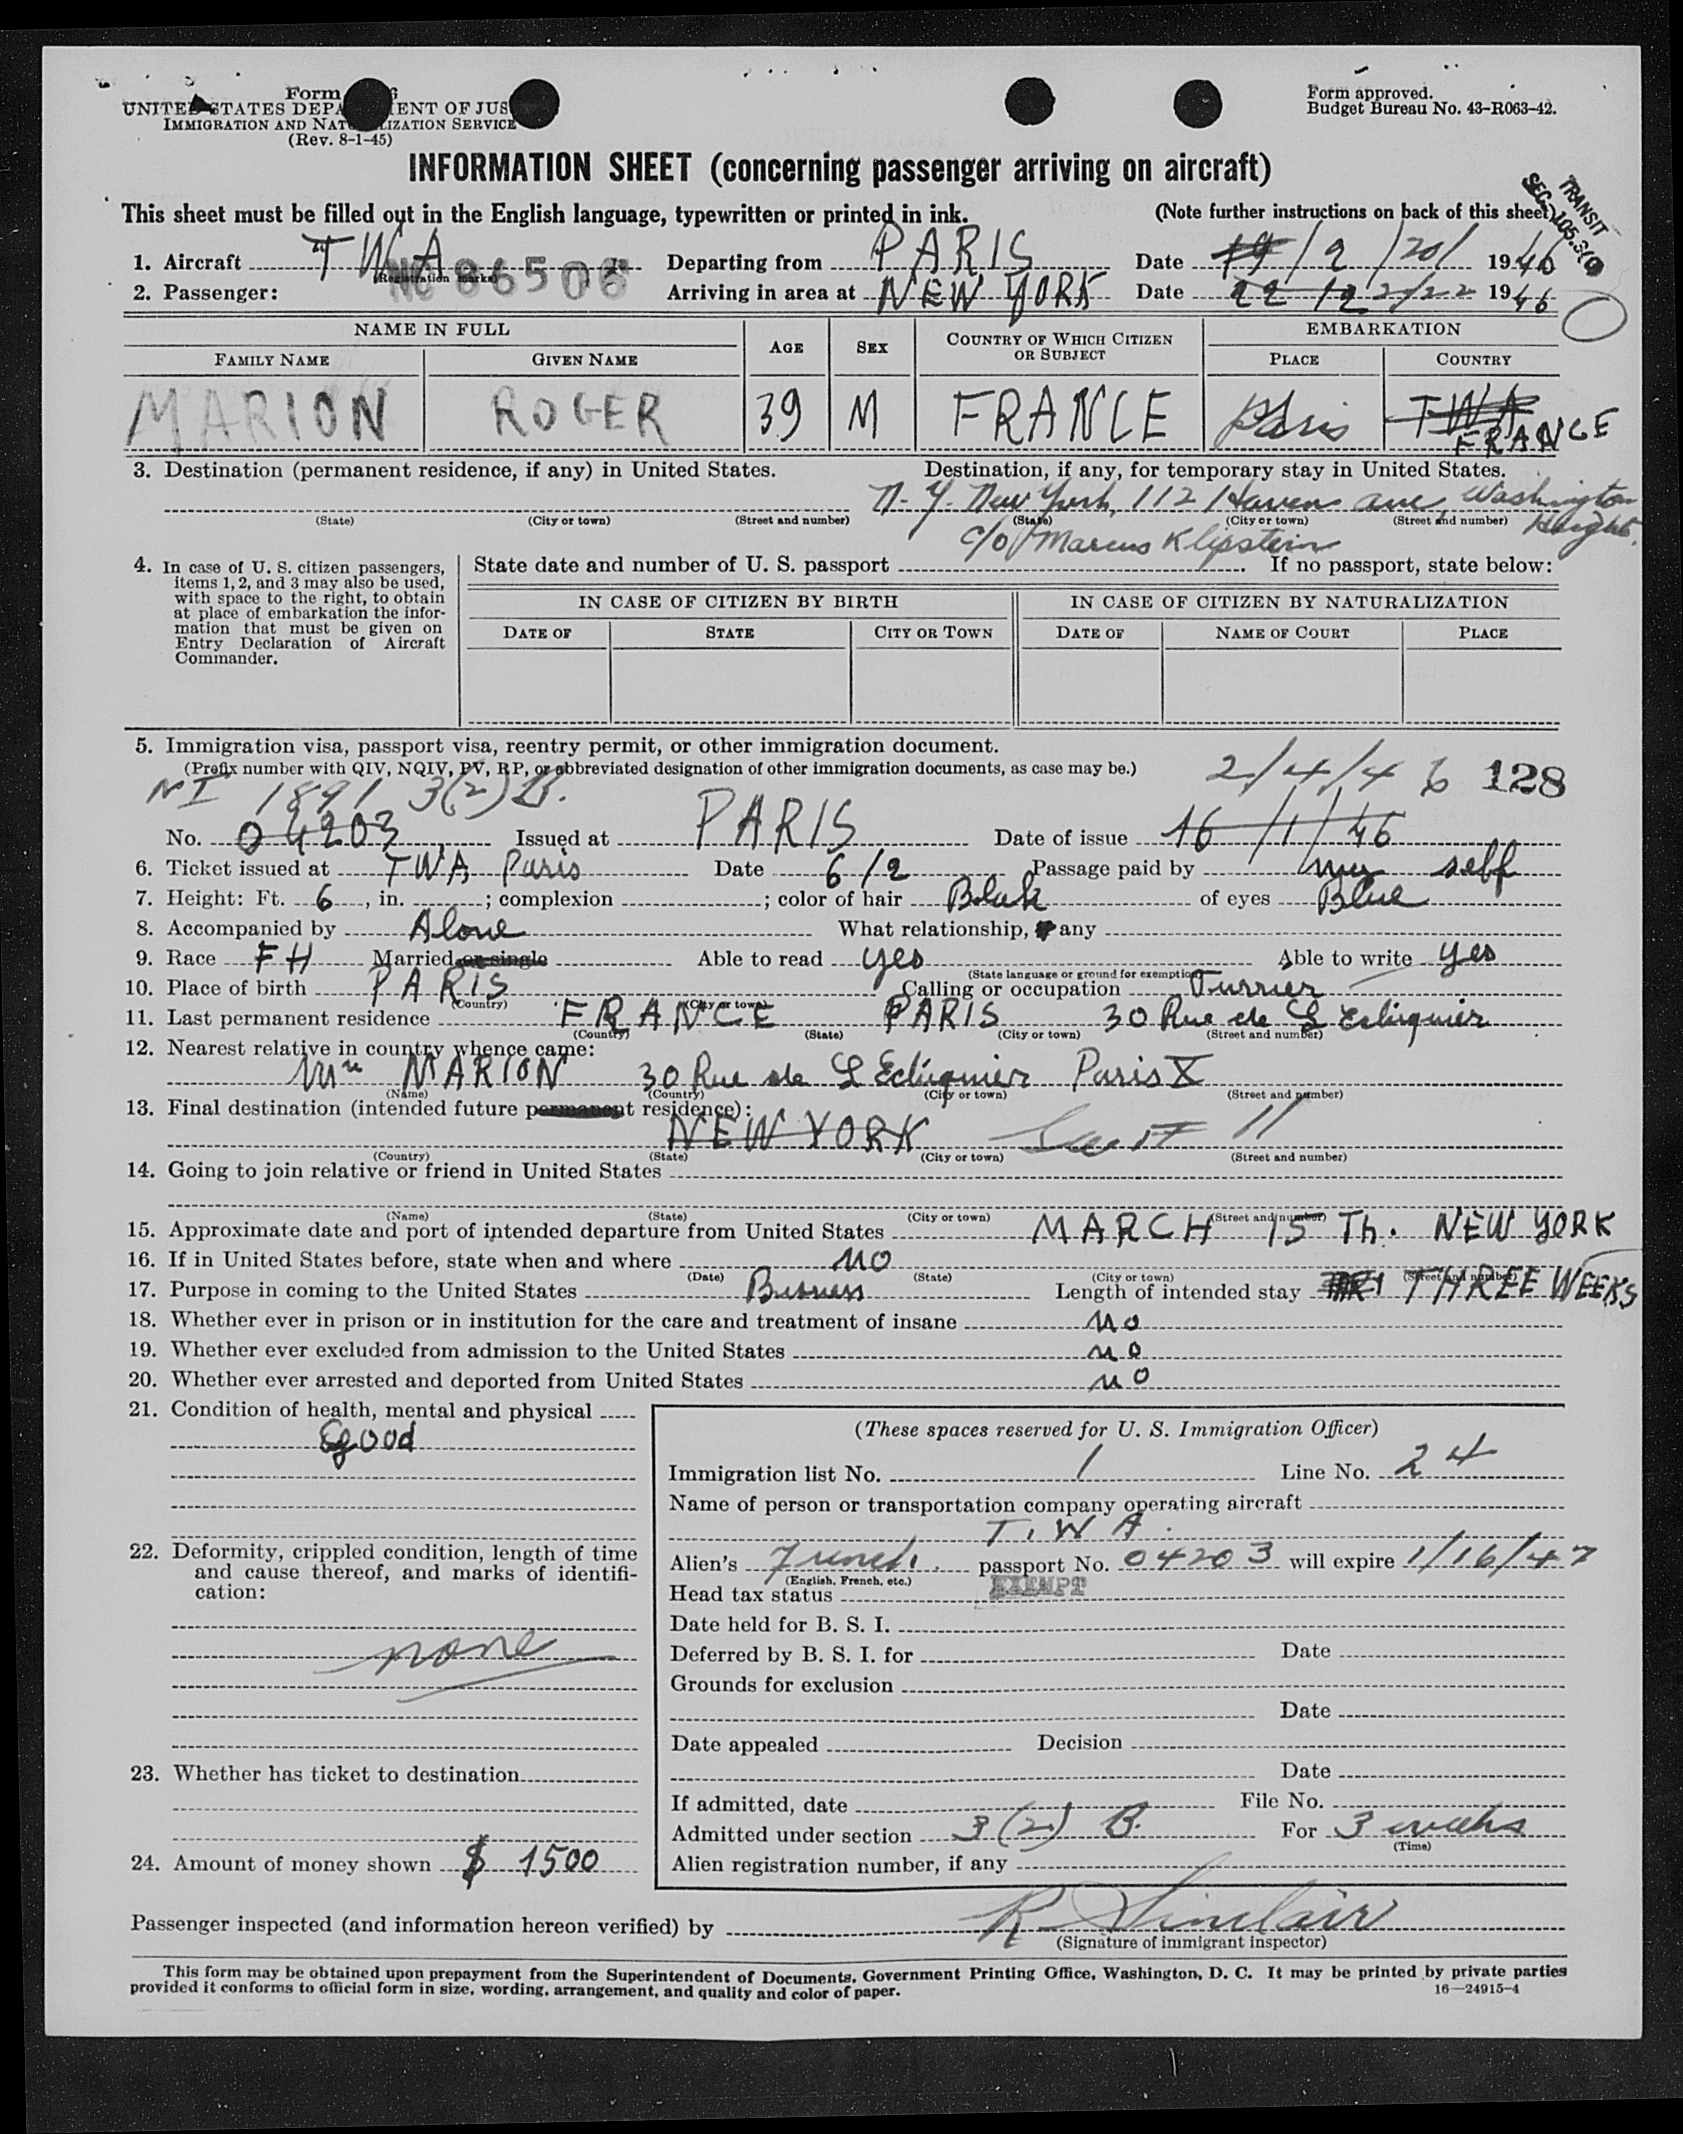 Form
UNITED STATES DEPA ENT OF JUS
IMMIGRATION AND NAT IZATION SERVICE
(Rev. 8-1-45)
Form approved.
Budget Bureau No. 43-R063-42.
INFORMATION SHEET (concerning passenger arriving on aircraft)
TRANSIT
SEC.
This sheet must be filled out in the English language, typewritten or printed in ink. (Note further instructions on back of this sheet)
1. Aircraft TWA NC 86506 Departing from PARIS Date 19/2/20/ 1946
(Registration marks)
2. Passenger: Arriving in area at NEW YORK Date 22 12 2/22 1946
NAME IN FULL AGE SEX COUNTRY OF WHICH CITIZEN OR SUBJECT EMBARKATION
FAMILY NAME GIVEN NAME PLACE COUNTRY
MARION ROGER 39 M FRANCE Paris TWA FRANCE
3. Destination (permanent residence, if any) in United States. Destination, if any, for temporary stay in United States.
N.Y. New York, 112 Haven ave, Washington Height.
(State) (City or town) (Street and number) (State) (City or town) (Street and number)
c/o Marcus Klipstein
4. In case of U. S. citizen passengers, items 1, 2, and 3 may also be used, with space to the right, to obtain at place of embarkation the information that must be given on Entry Declaration of Aircraft Commander.
State date and number of U. S. passport If no passport, state below:
IN CASE OF CITIZEN BY BIRTH IN CASE OF CITIZEN BY NATURALIZATION
DATE OF STATE CITY OR TOWN DATE OF NAME OF COURT PLACE
5. Immigration visa, passport visa, reentry permit, or other immigration document.
(Prefix number with QIV, NQIV, PV, RP, or abbreviated designation of other immigration documents, as case may be.) 2/4/46 128
NI 1891 3(2)B.
No. 04203 Issued at PARIS Date of issue 16/1/46
6. Ticket issued at TWA Paris Date 6/2 Passage paid by my self
7. Height: Ft. 6, in. ; complexion ; color of hair Blak of eyes Blue
8. Accompanied by Alone What relationship, if any
9. Race FH Married or single Able to read yes Able to write yes
(State language or ground for exemption)
10. Place of birth PARIS Calling or occupation Furrier
(Country) (City or town)
11. Last permanent residence FRANCE PARIS 30 Rue de L Echiquier
(Country) (State) (City or town) (Street and number)
12. Nearest relative in country whence came:
Mme MARION 30 Rue de L Echiquier Paris X
(Name) (Country) (City or town) (Street and number)
13. Final destination (intended future permanent residence):
NEW YORK 11
(Country) (State) (City or town) (Street and number)
14. Going to join relative or friend in United States
(Name) (State) (City or town) (Street and number)
15. Approximate date and port of intended departure from United States MARCH 15 Th. NEW YORK
16. If in United States before, state when and where no
(Date) (State) (City or town) (Street and number)
17. Purpose in coming to the United States Busness Length of intended stay THREE WEEKS
18. Whether ever in prison or in institution for the care and treatment of insane no
19. Whether ever excluded from admission to the United States no
20. Whether ever arrested and deported from United States no
21. Condition of health, mental and physical
good
22. Deformity, crippled condition, length of time and cause thereof, and marks of identification:
none
23. Whether has ticket to destination
24. Amount of money shown $ 1500
(These spaces reserved for U. S. Immigration Officer)
Immigration list No. 1 Line No. 24
Name of person or transportation company operating aircraft
T.W.A.
Alien's French passport No. 04203 will expire 1/16/47
(English, French, etc.)
Head tax status EXEMPT
Date held for B. S. I.
Deferred by B. S. I. for Date
Grounds for exclusion
Date
Date appealed Decision
Date
If admitted, date File No.
Admitted under section 3(2) B. For 3 weeks
(Time)
Alien registration number, if any
Passenger inspected (and information hereon verified) by R Sinclair
(Signature of immigrant inspector)
This form may be obtained upon prepayment from the Superintendent of Documents, Government Printing Office, Washington, D. C. It may be printed by private parties
provided it conforms to official form in size, wording, arrangement, and quality and color of paper. 16—24915-4